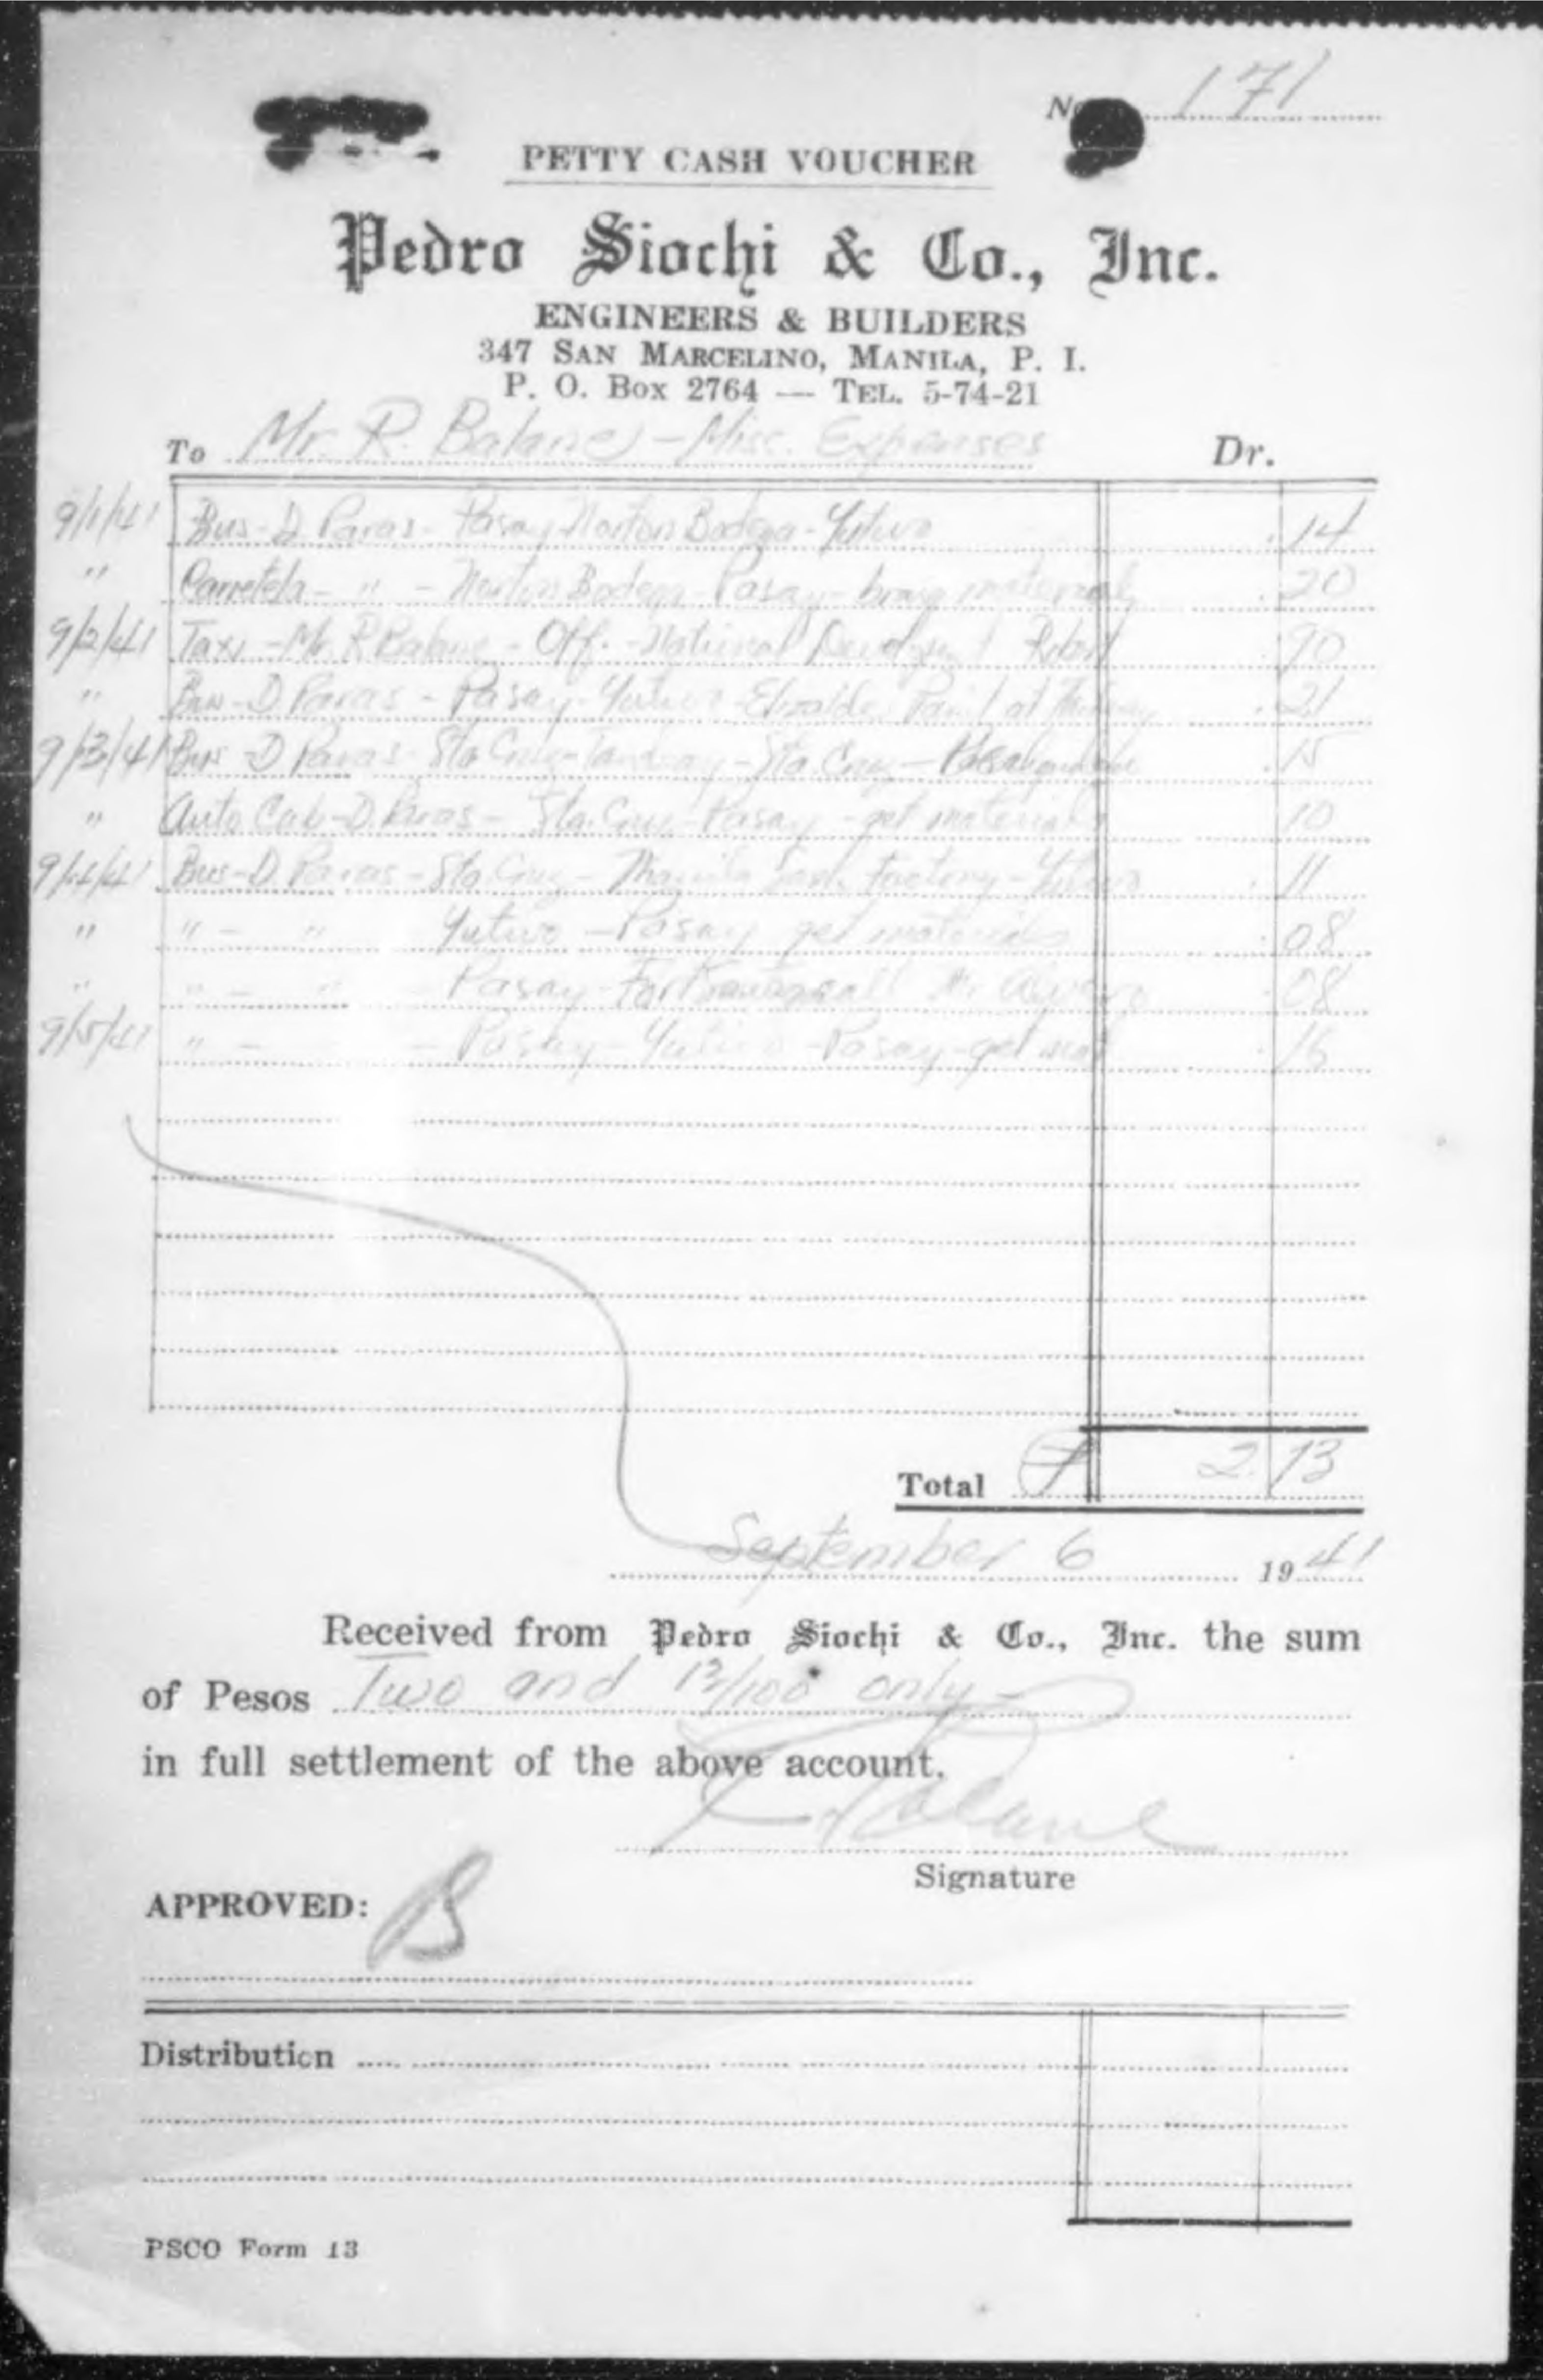 No. 171
PETTY CASH VOUCHER
Pedro Siochi & Co., Inc.
ENGINEERS & BUILDERS
347 SAN MARCELINO, MANILA, P. I.
P. O. Box 2764 — TEL. 5-74-21
To Mr. R. Balane - Misc. Expenses Dr.
9/1/41 Bus - D. Paras - Pasay Norton Bodega - Yutivo .14
" Carretela - " - Norton Bodega - Pasay - .20
9/2/41 Taxi - Mr. R. Balane - Off. - National .90
" Bus - D. Paras - Pasay - Yutivo - Elizalde Paint .21
9/3/41 Bus - D. Paras - Sta Cruz - - Sta. Cruz - .15
" Auto Cab - D. Paras - Sta. Cruz - Pasay - get materials .10
9/4/41 Bus - D. Paras - Sta. Cruz - Factory - Yutivo .11
" " - " Yutivo - Pasay get materials .08
" " - " - Pasay - .08
9/5/41 " - - Pasay - Yutivo - Pasay - get mat .16
Total ₱ 2.13
September 6 1941
Received from Pedro Siochi & Co., Inc. the sum
of Pesos Two and 13/100 only -
in full settlement of the above account.
R Balane
Signature
APPROVED: B
Distribution
PSCO Form 13